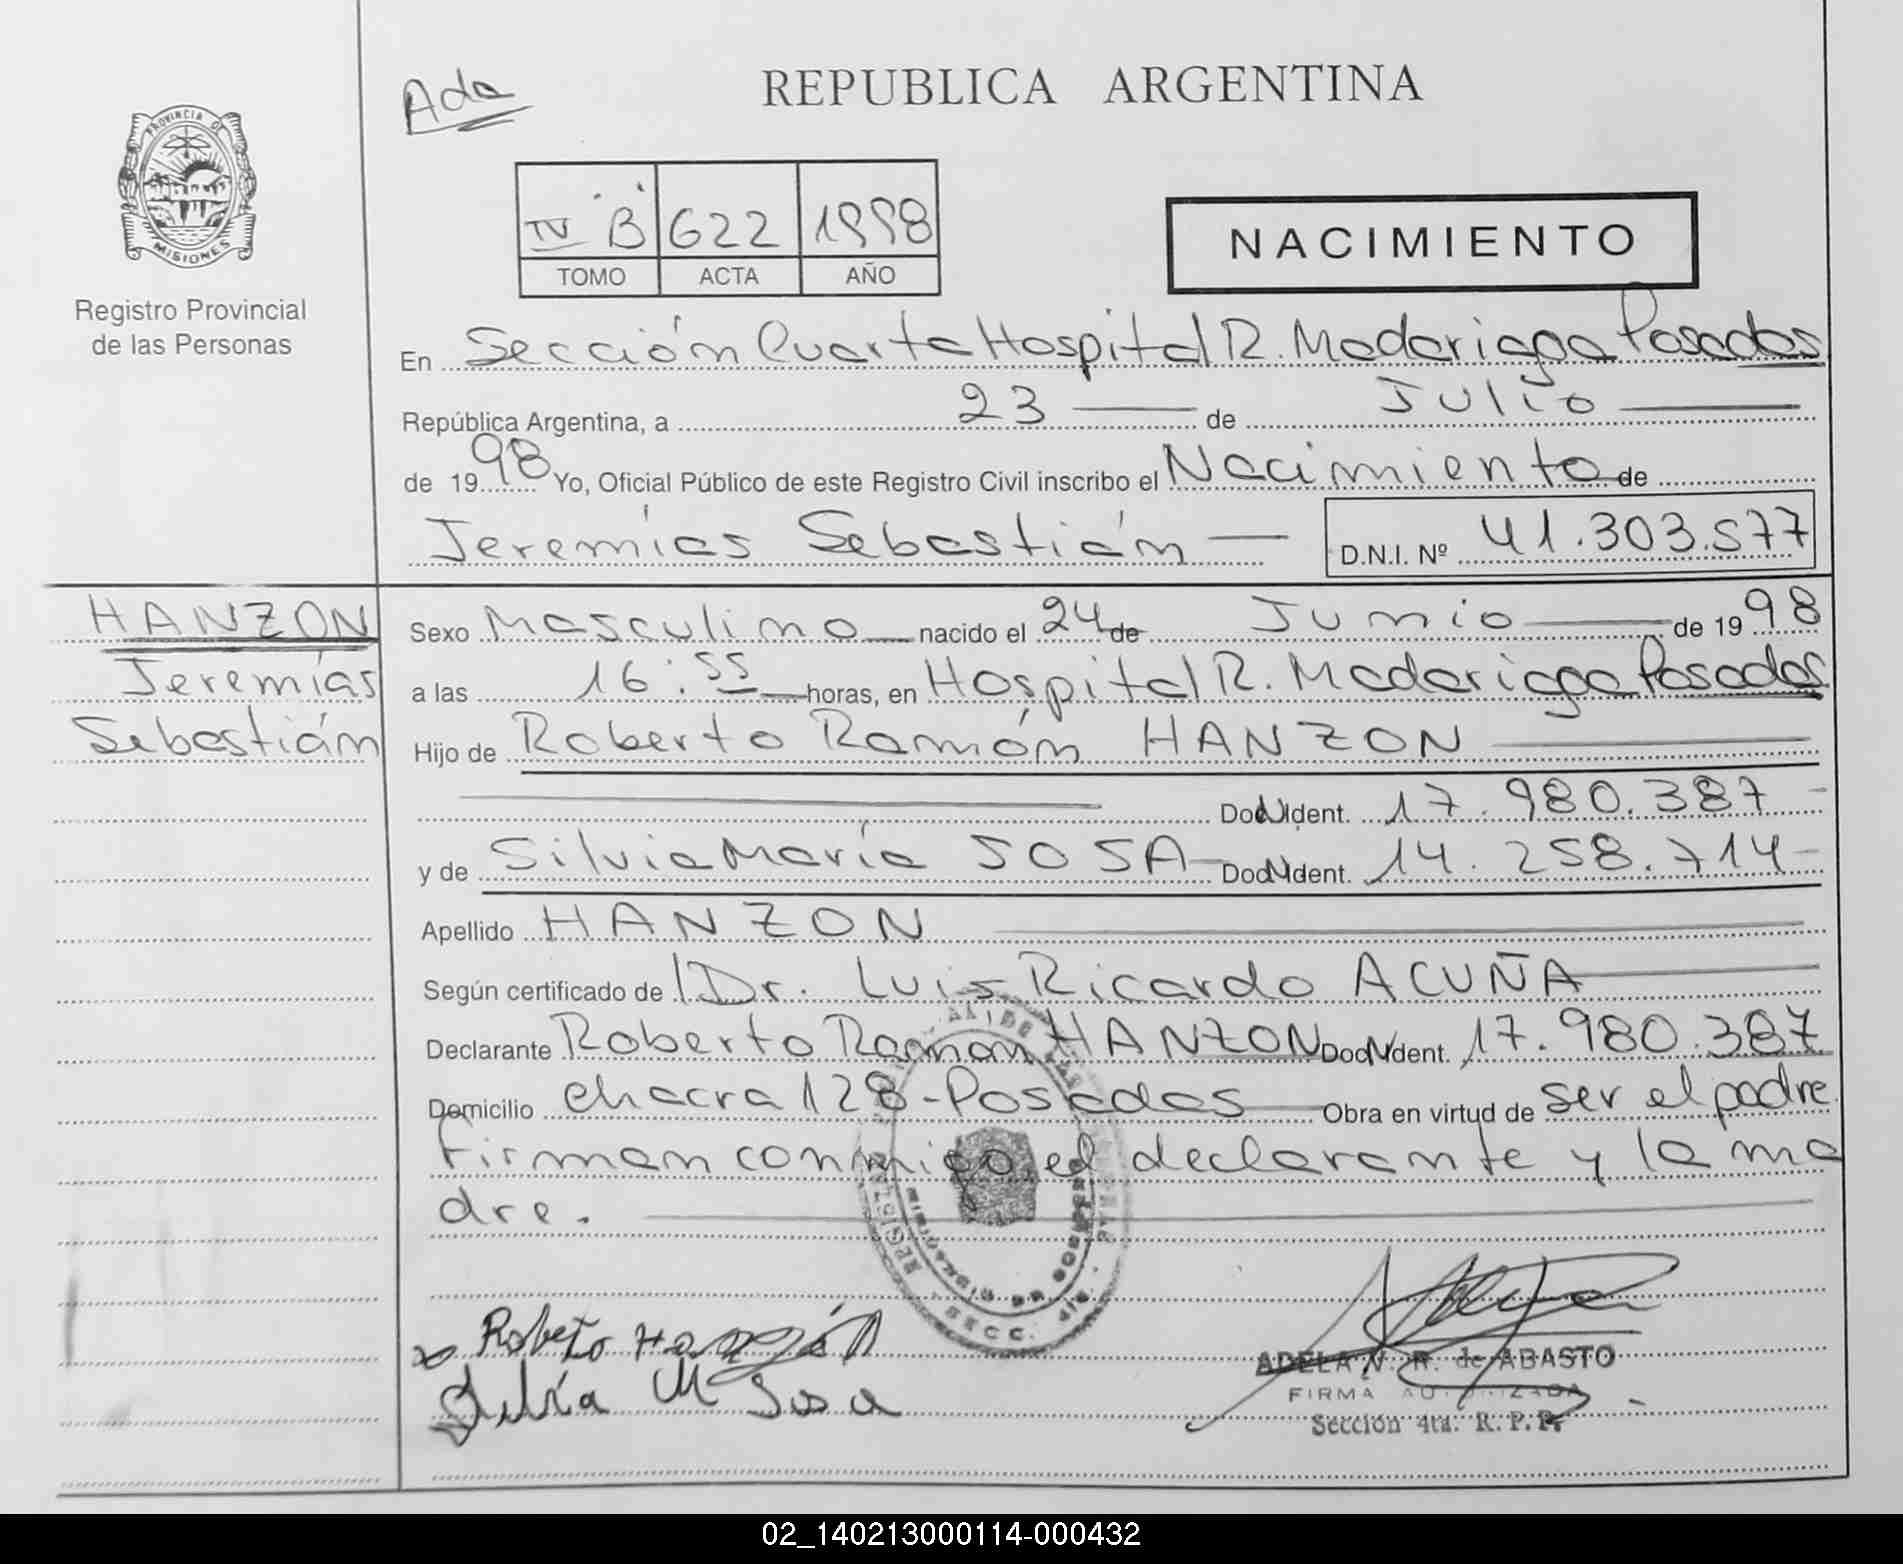 Ada
REPUBLICA ARGENTINA
PROVINCIA DE
MISIONES
Registro Provincial
de las Personas
IV "B" 622 1998
TOMO ACTA AÑO
NACIMIENTO
En Sección Cuarta Hospital R. Madariaga Posadas
República Argentina, a 23 de Julio
de 1998 Yo, Oficial Público de este Registro Civil inscribo el Nacimiento de
Jeremías Sebastián D.N.I. Nº 41.303.577
HANZON
Jeremías
Sebastián
Sexo Masculino nacido el 24 de Junio de 1998
a las 16:55 horas, en Hospital R. Madariaga Posadas
Hijo de Roberto Ramón HANZON
Doc. Ident. 17.980.387
y de Silvia María SOSA Doc. Ident. 14.258.714
Apellido HANZON
Según certificado de Dr. Luis Ricardo ACUÑA
Declarante Roberto Ramon HANZON Doc. Ident. 17.980.387
Domicilio chacra 128-Posadas Obra en virtud de ser el padre
Firman conmigo el declarante y la ma
dre.
Roberto Hanzón
Silvia M Sosa
ADELA N. R. de ABASTO
FIRMA AUTORIZADA
Sección 4ta. R. P. P.
02_140213000114-000432